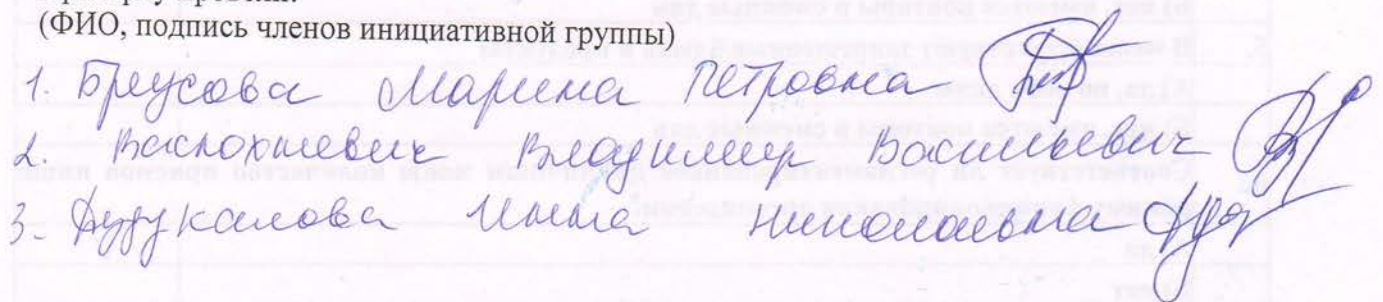 (ФИО, подпись членов инициативной группы)
1. Бреусова Марина Петровна
2. Владимир Васильевич
3. Дудукалова Инна Николаевна